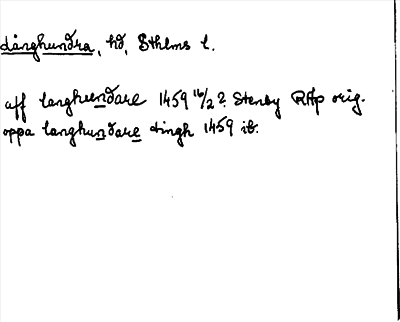 Långhundra, hd, Sthlms l.
aff langhundare 1459 16/2? Stenby RAp orig.
oppa langhundare tingh 1459 ib.